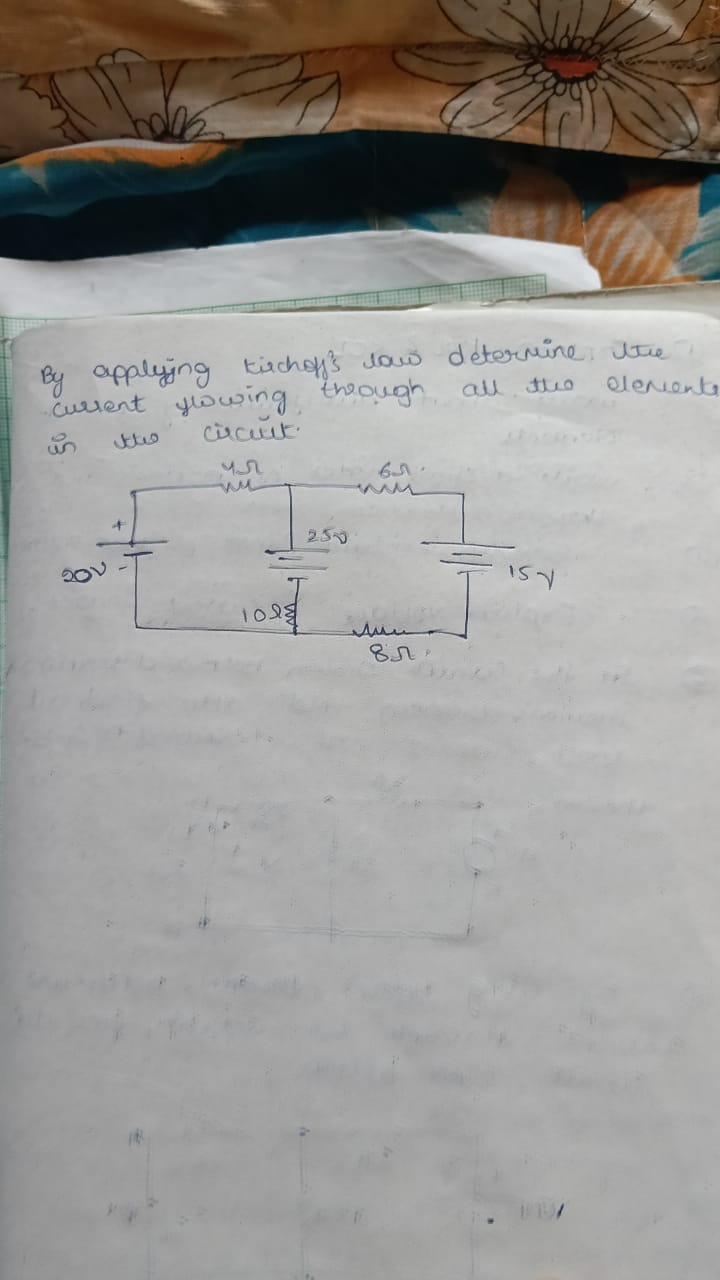 By applying kirchoff's law determine the
current flowing through all the elements
in the circuit.
4Ω 6Ω
+ 25v
20V - 15V
10Ω
8Ω